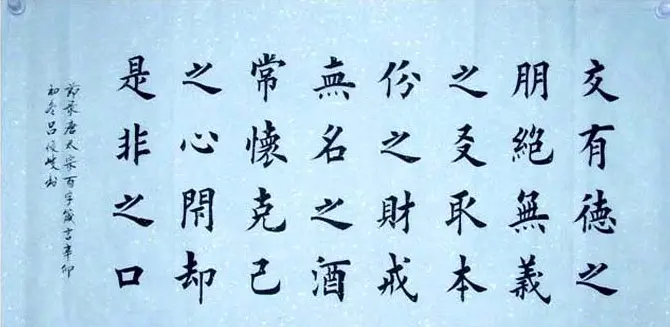 交有德之
朋絕無義
之友取本
份之財戒
無名之酒
常懷克己
之心閇却
是非之口
節录唐太宗百字箴言辛卯
初冬吕俊书